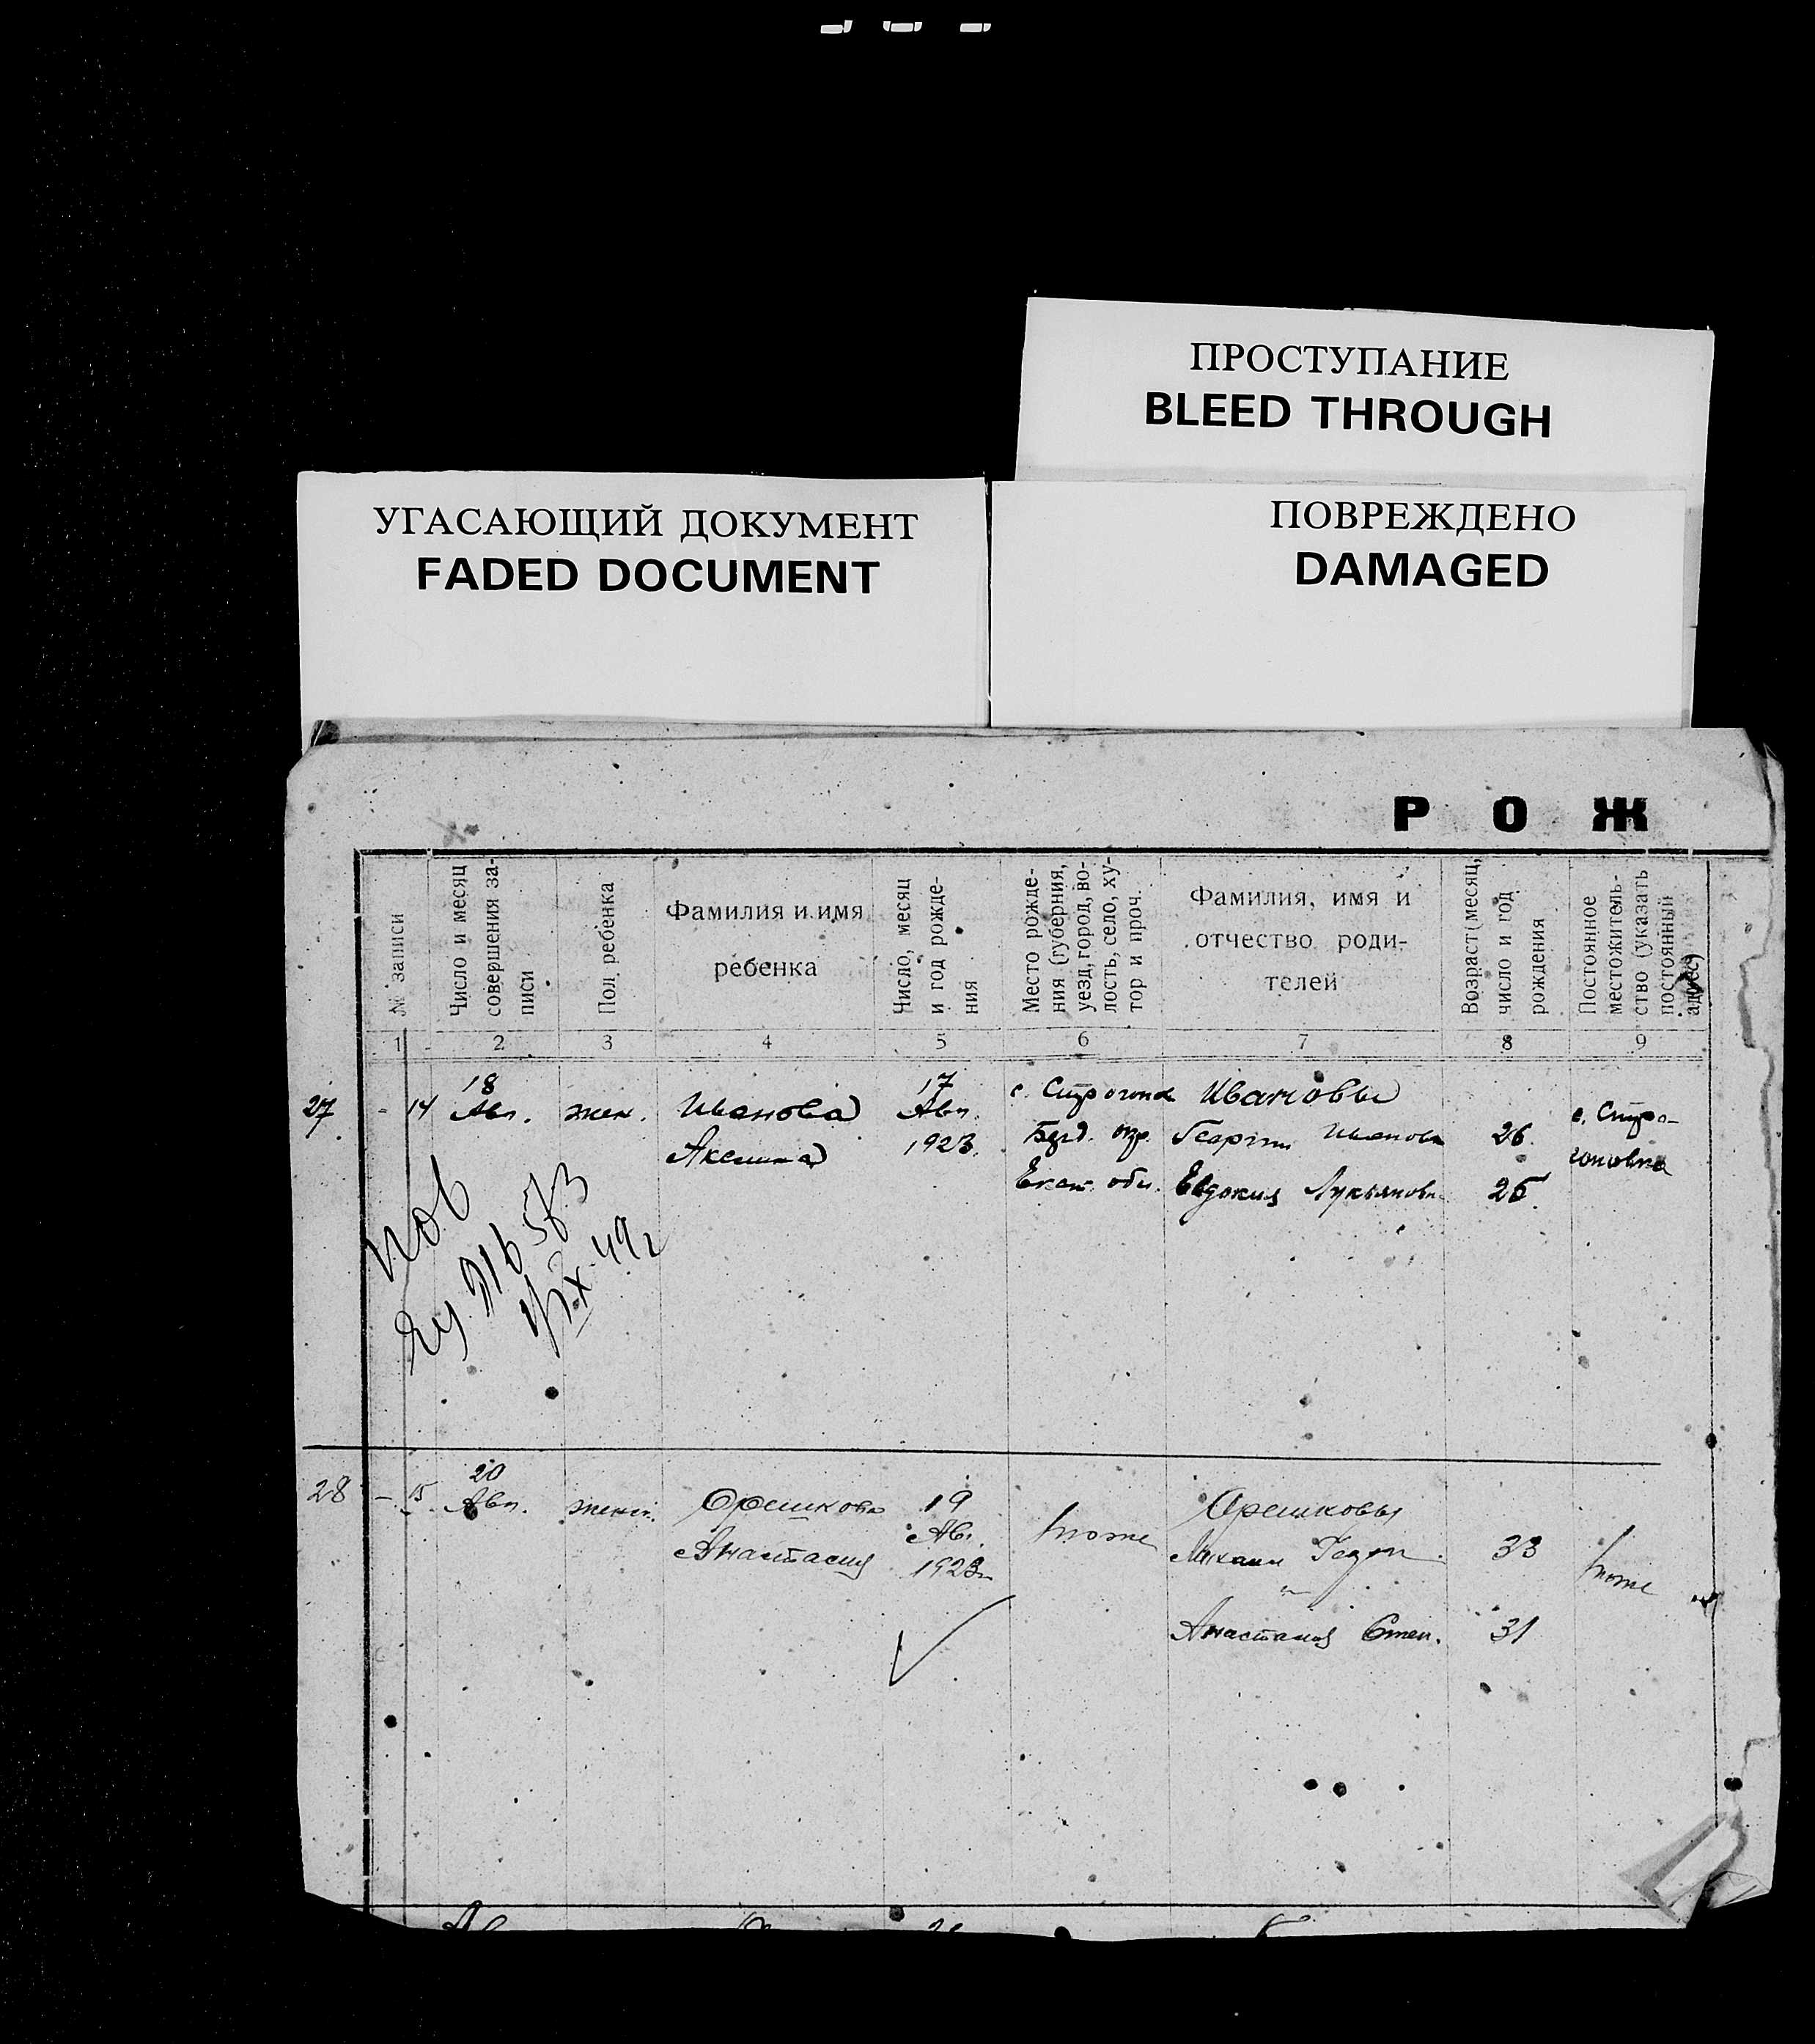 ПРОСТУПАНИЕ
BLEED THROUGH
УГАСАЮЩИЙ ДОКУМЕНТ
FADED DOCUMENT
ПОВРЕЖДЕНО
DAMAGED
Р О Ж
№ записи
Число и месяц
совершения за-
писи
Пол ребенка
Фамилия и имя
ребенка
Число, месяц
и год рожде-
ния
Место рожде-
ния (губерния,
уезд, город, во-
лость, село, ху-
тор и проч.
Фамилия, имя и
отчество роди-
телей
Возраст (месяц,
число и год
рождения
Постоянное
местожитель-
ство (указать
постоянный
адрес)
1 2 3 4 5 6 7 8 9
27 - 14
18
Авг.
жен.
Иванова
Аксинья
17
Авг.
1923.
с.
Екат. обл.
Ивановы
Георгий Иванов
Евдокия Лукьяновн
26.
25.
с. Стро-
гоновка
Пов
573
49г
28 - 15.
20
Авг.
женс.
Орешкова
Анастасия
19
Авг.
1923г
тоже
Орешковы
Михаил
Анастасия Степ.
33
31
тоже